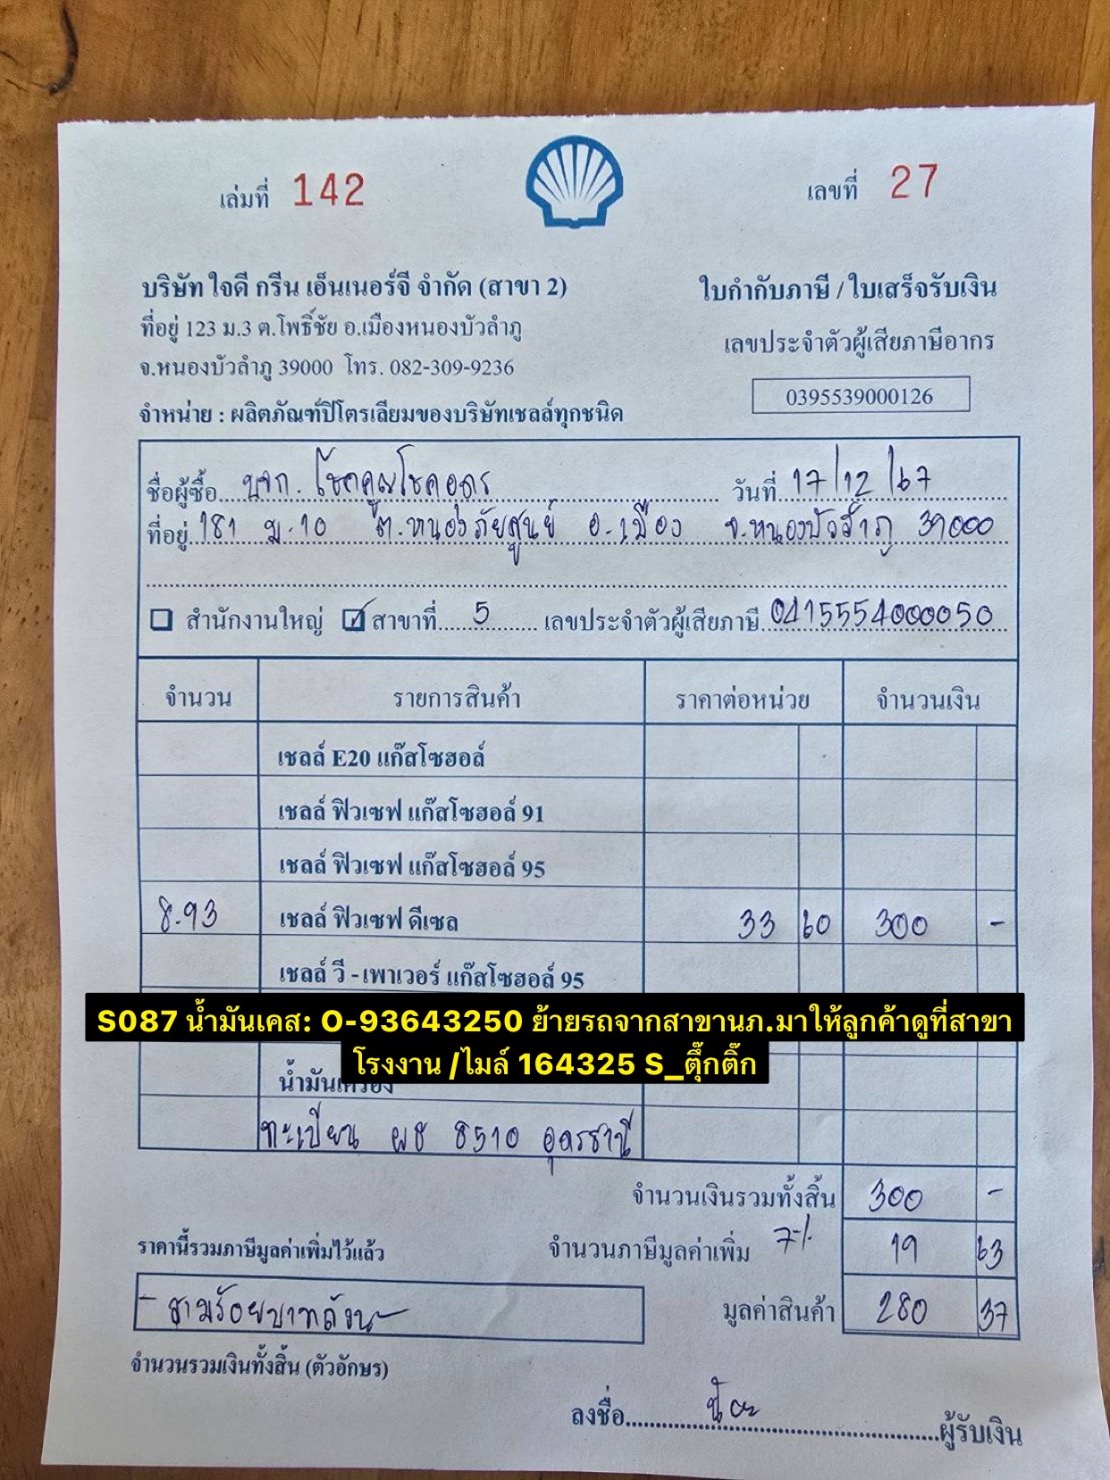 เล่มที่ 142
เลขที่ 27
บริษัท ใจดี กรีน เอ็นเนอร์จี จำกัด (สาขา 2)
ใบกำกับภาษี / ใบเสร็จรับเงิน
ที่อยู่ 123 ม.3 ต.โพธิ์ชัย อ.เมืองหนองบัวลำภู
เลขประจำตัวผู้เสียภาษีอากร
จ.หนองบัวลำภู 39000 โทร. 082-309-9236
0395539000126
จำหน่าย : ผลิตภัณฑ์ปิโตรเลียมของบริษัทเชลล์ทุกชนิด
ชื่อผู้ซื้อ บจก. โชคคูณโชคอุดร วันที่ 17/12/67
ที่อยู่ 181 ม.10 ต.หนองภัยศูนย์ อ.เมือง จ.หนองบัวลำภู 39000
สำนักงานใหญ่ สาขาที่ 5 เลขประจำตัวผู้เสียภาษี 0415554000050
จำนวน รายการสินค้า ราคาต่อหน่วย จำนวนเงิน
เชลล์ E20 แก๊สโซฮอล์
เชลล์ ฟิวเซฟ แก๊สโซฮอล์ 91
เชลล์ ฟิวเซฟ แก๊สโซฮอล์ 95
8.93 เชลล์ ฟิวเซฟ ดีเซล 33 60 300 -
เชลล์ วี - เพาเวอร์ แก๊สโซฮอล์ 95
S087 น้ำมันเคส: O-93643250 ย้ายรถจากสาขานภ.มาให้ลูกค้าดูที่สาขา
โรงงาน /ไมล์ 164325 S_ตุ๊กติ๊ก
น้ำมันเครื่อง
ทะเบียน ผช 8510 อุดรธานี
จำนวนเงินรวมทั้งสิ้น 300 -
ราคานี้รวมภาษีมูลค่าเพิ่มไว้แล้ว จำนวนภาษีมูลค่าเพิ่ม 7% 19 63
- สามร้อยบาทถ้วน - มูลค่าสินค้า 280 37
จำนวนรวมเงินทั้งสิ้น (ตัวอักษร)
ลงชื่อ ผู้รับเงิน